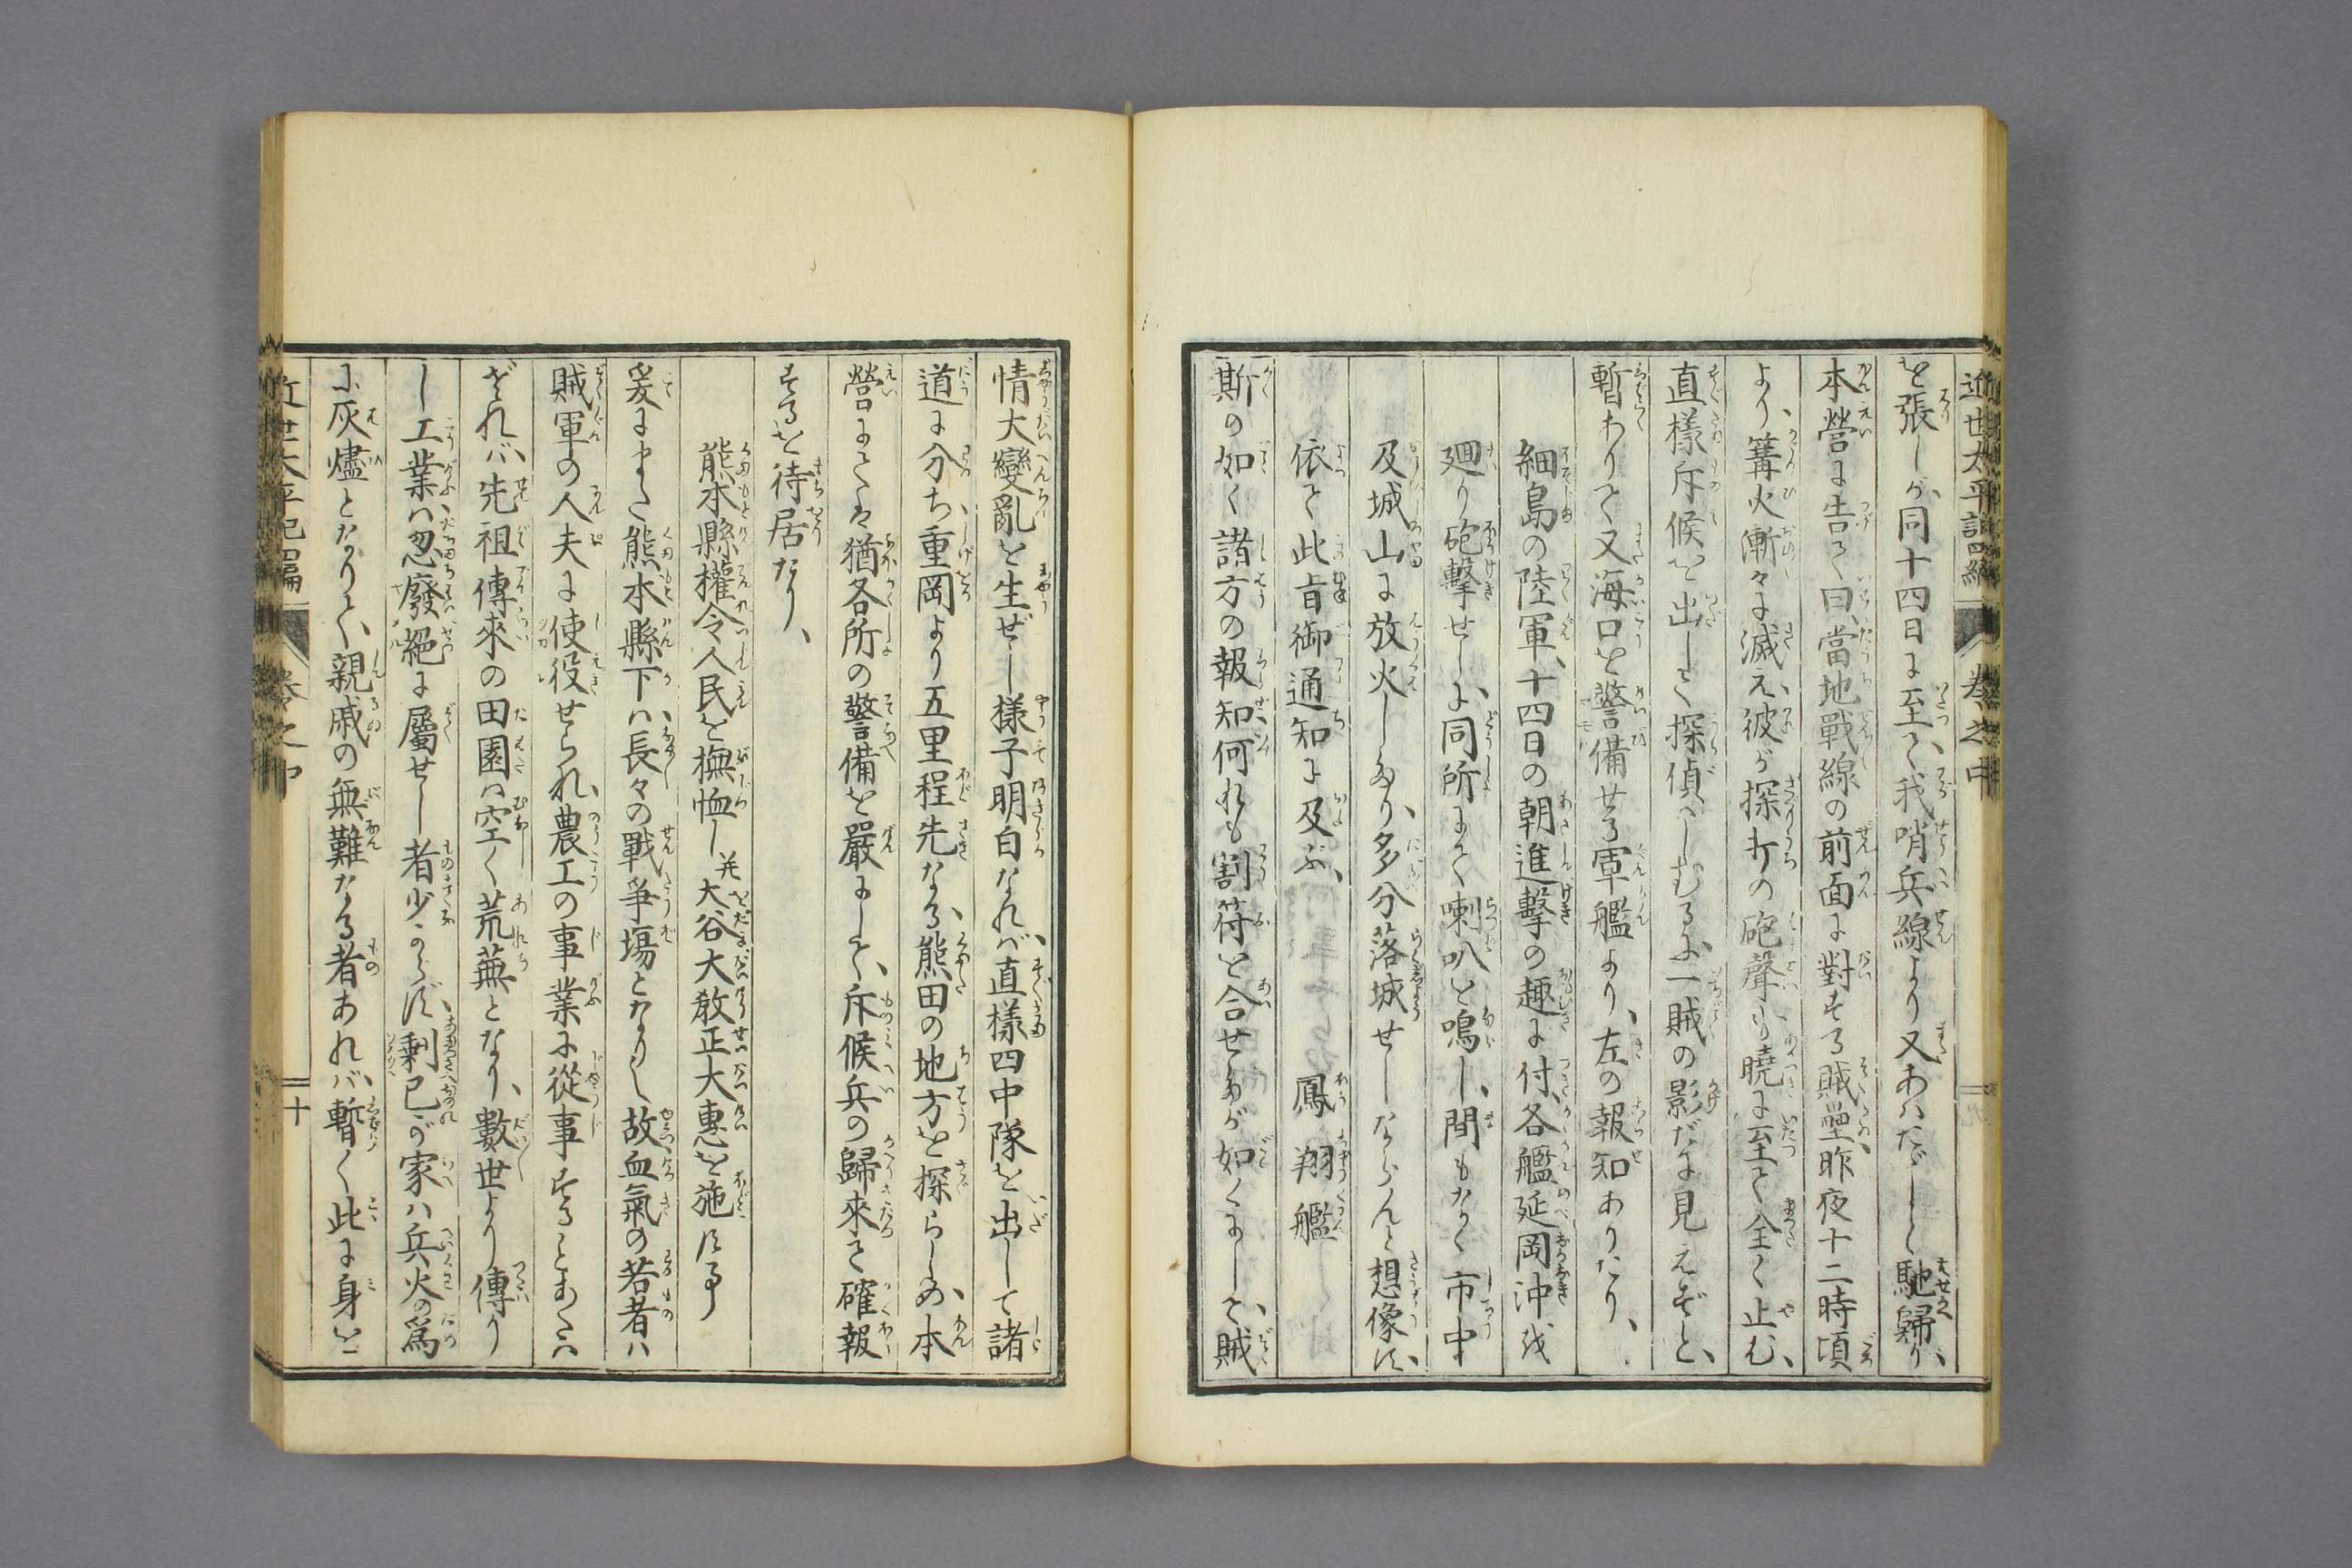 近世太平記四編 巻之中 九
を張しが、同十四日に至て、我哨兵線より又あはたゞしく馳歸り、
本營に告て曰、當地戰線の前面に對する賊壘、昨夜十二時頃
より、篝火漸々に滅え、彼が探打の砲聲も曉に至て全く止む、
直樣斥候を出して探偵へしむるに、一賊の影だに見えずと、
暫ありて又海口を警備せる軍艦より、左の報知ありたり、
細島の陸軍、十四日の朝進擊の趣に付、各艦延岡沖或
廻り砲擊せしに、同所にて喇叭を鳴し、間もなく市中
及城山に放火しあり、多分落城せしならんと想像す、
依て此旨御通知に及ぶ、 鳳翔艦
斯の如く諸方の報知、何れも割符を合せるが如くにして、賊
情大變亂を生ぜし樣子明白なれば、直樣四中隊を出して諸
道に分ち、重岡より五里程先なる、熊田の地方を探らしめ、本
營にても猶各所の警備を嚴にして、斥候兵の歸來て確報
するを待居たり、
熊本縣權令人民を撫恤し并大谷大敎正大惠を施す事
爰にまた熊本縣下は、長々の戰爭塲となりし故、血氣の若者は
賊軍の人夫に使役せられ、農工の事業に從事することあたは
ざれば、先祖傳來の田園は空く荒蕪となり、數世より傳り
し工業は忽廢絕に屬せし者少からず、剩己が家は兵火の爲
に灰燼となりて、親戚の無難なる者あれば、暫く此に身を
近世太平記四編 巻之中 十